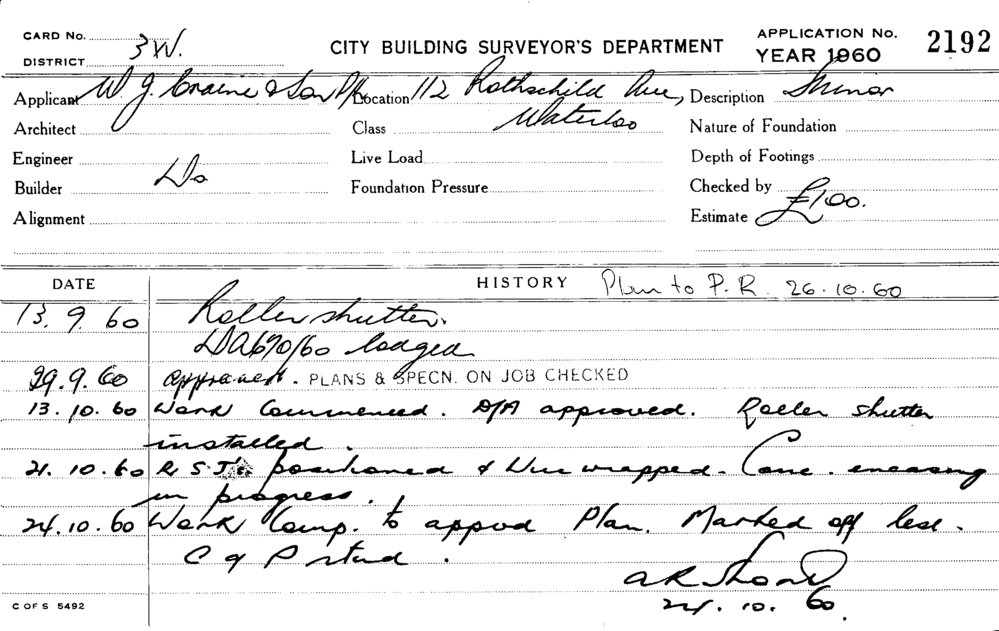 CARD No.
CITY BUILDING SURVEYOR'S DEPARTMENT
APPLICATION No. 2192
DISTRICT 3W.
YEAR 1960
Applicant W. J. Craine & Son P/L Location 112 Rothschild Ave, Description Minor
Architect Class Waterloo Nature of Foundation
Engineer Live Load Depth of Footings
Builder Do Foundation Pressure Checked by
Alignment Estimate £100.
DATE HISTORY Plan to P.R. 26.10.60
13.9.60 Roller shutter.
DA690/60 lodged
29.9.60 approved. PLANS & SPECN. ON JOB CHECKED
13.10.60 Work Commenced. D/A approved. Roller shutter
installed.
21.10.60 R.S.J. positioned & Wire wrapped. Conc. encasing
in progress.
24.10.60 Work Comp. to appvd Plan. Marked off
C of P
24.10.60.
C OF S 5492